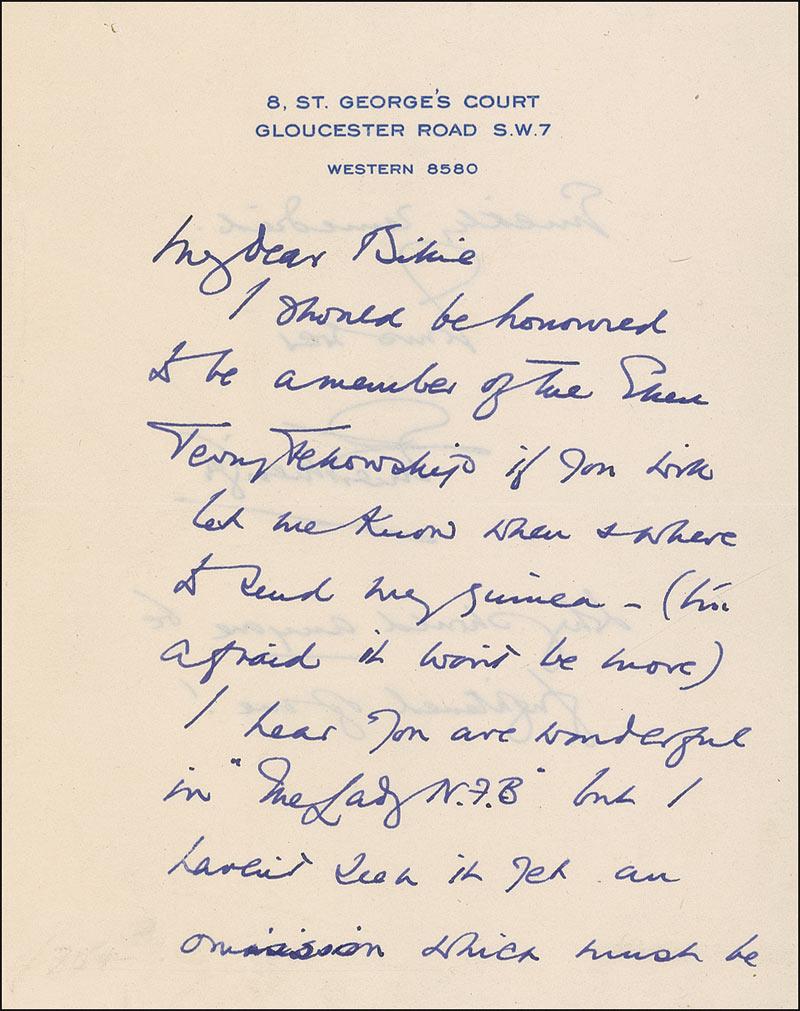 8, ST. GEORGE'S COURT
GLOUCESTER ROAD S.W.7
WESTERN 8580
My dear Billie
I should be honoured
to be a member of the Ellen
Terry Fellowship if you will
let me know when & where
to send my guinea – (I'm
afraid it won't be more)
I hear you are wonderful
in "The Lady N.F.B" but I
haven't seen it yet an
omission which must be